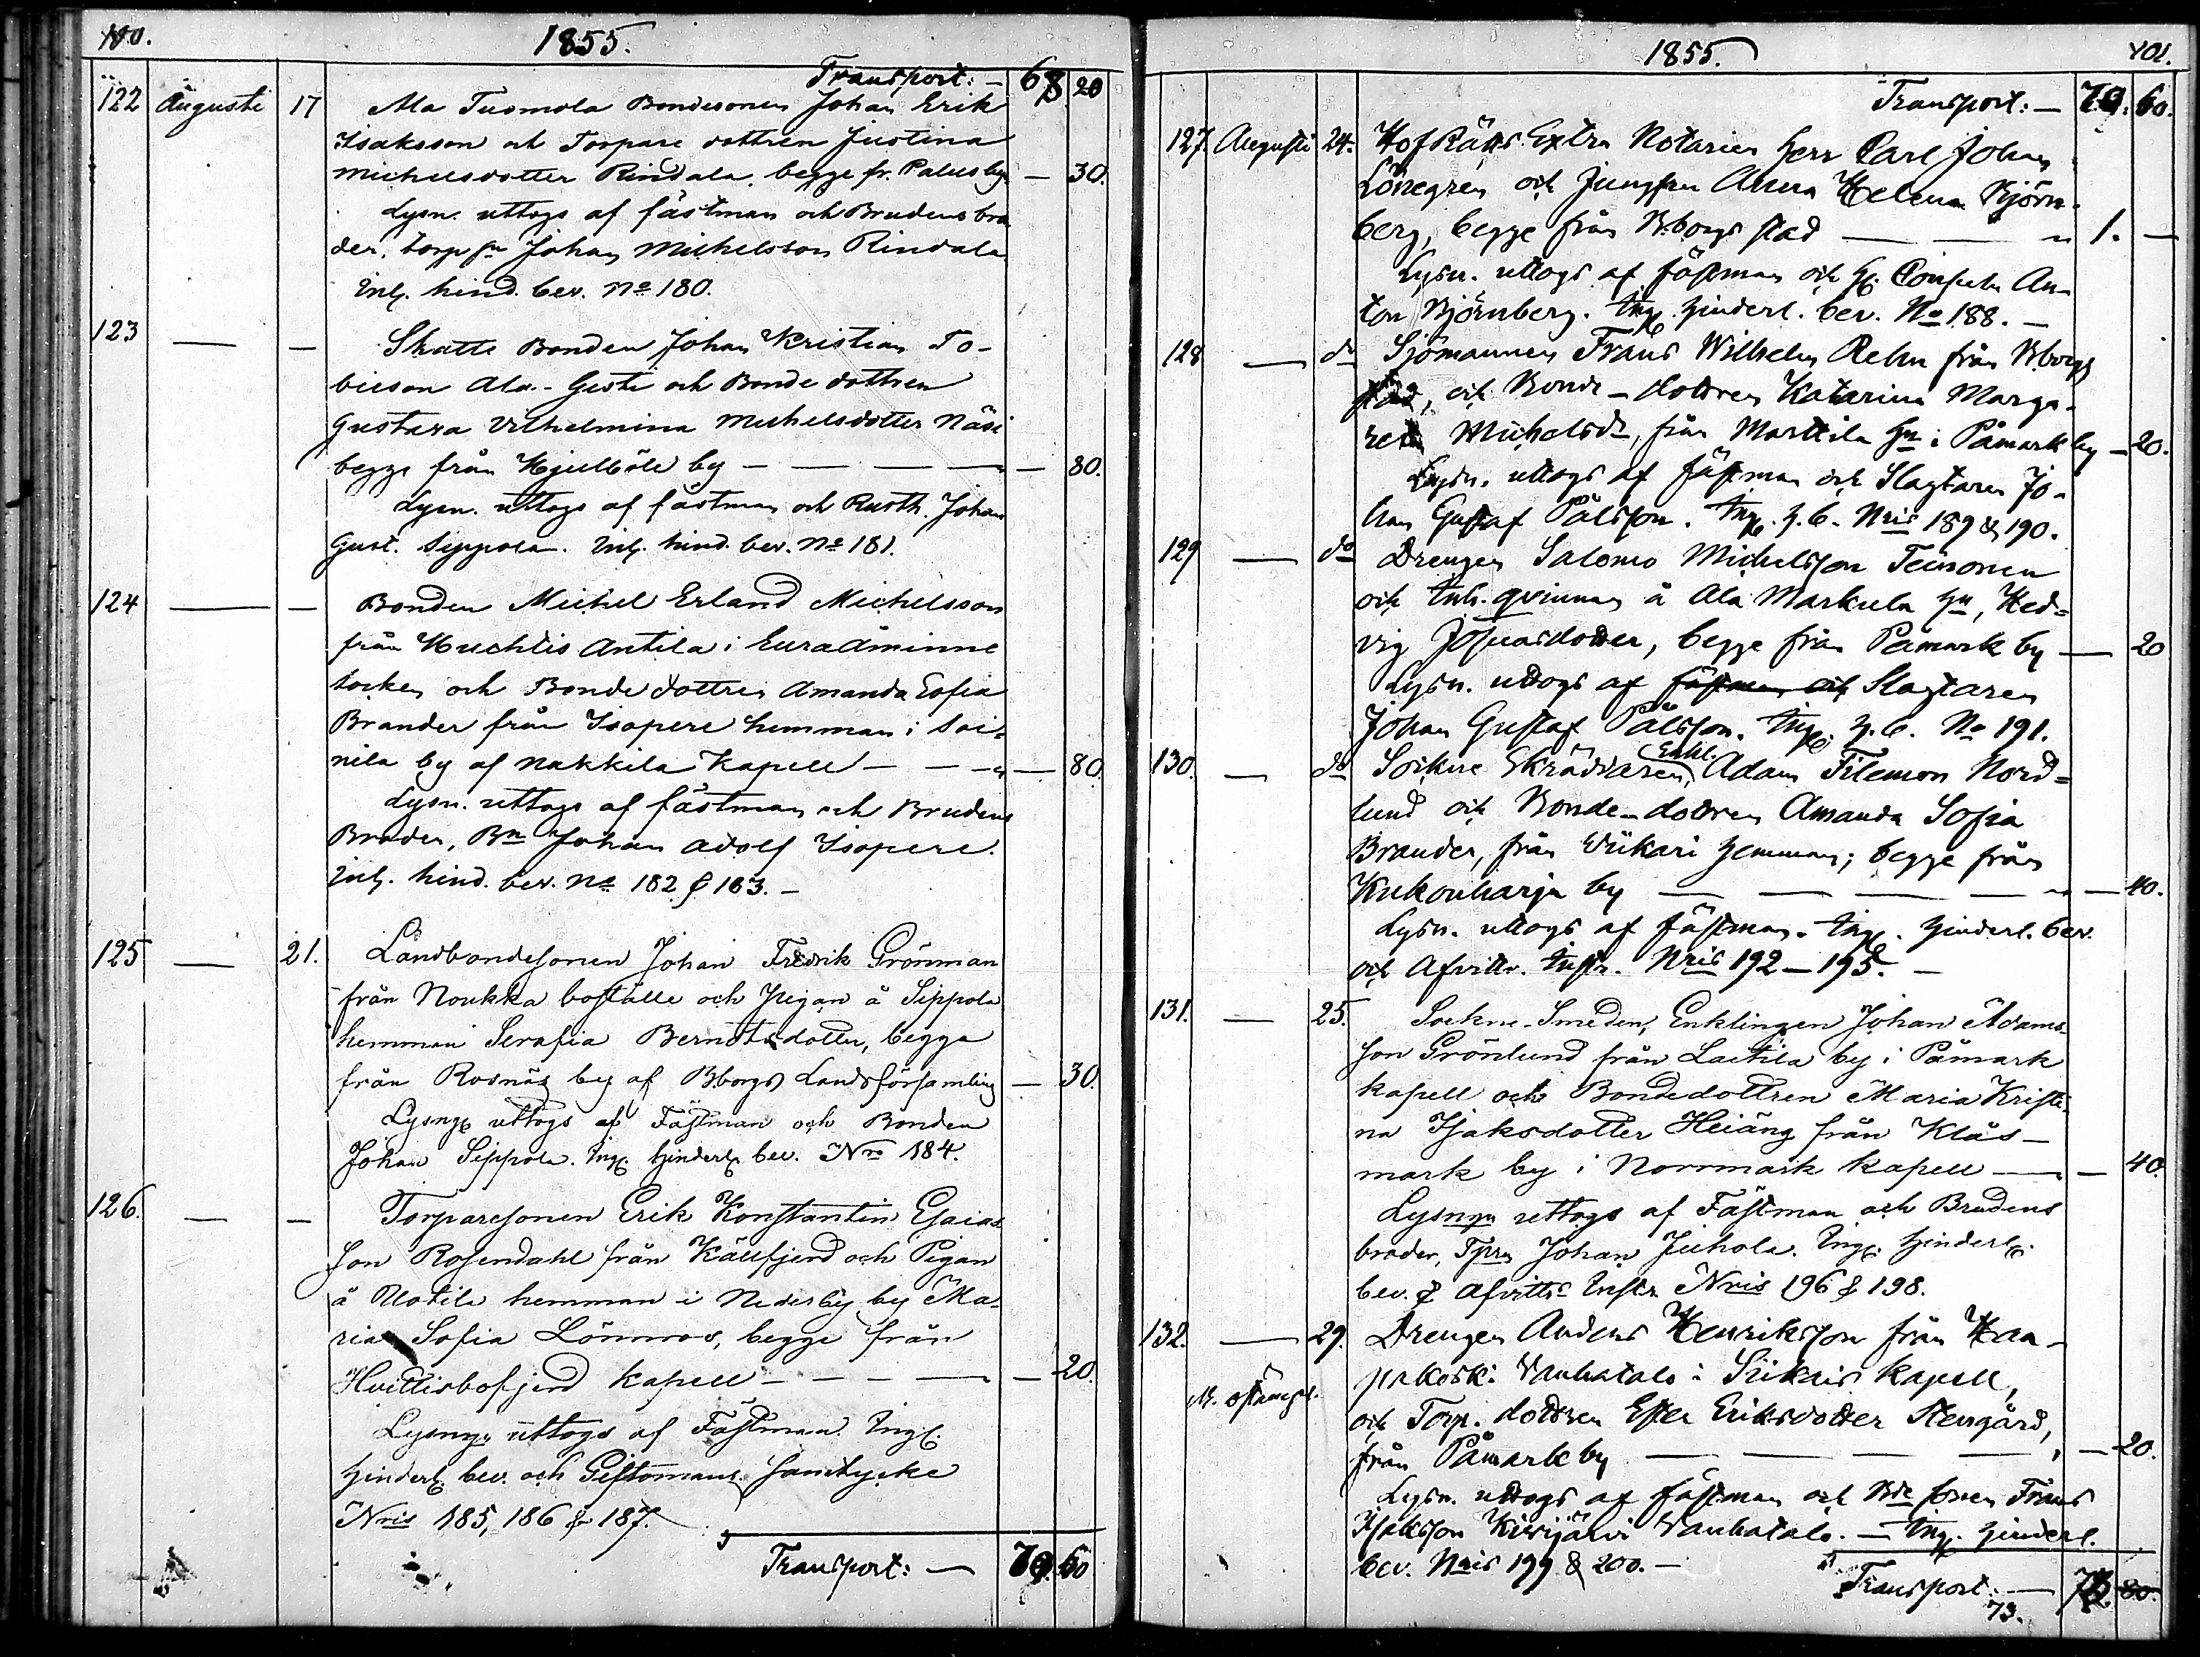 100.
1855.
Transport: — 68 20
122 Augusti 17 Ala Tuomola Bondesonen Johan Erik
Isaksson och Torpare dottren Justina
Michelsdotter Rindala, begge fr. Palus by — 30.
Lysn. uttogs af fästman och Brudens bro
der, torp sn Johan Michelsson Rindala
Inl. hind. bev. No 180.
123 — — Skatte Bonden Johan Kristian To-
biesson Ala-Gesti och Bonde dottren
Gustava Vilhelmina Michelsdotter Näsi
begge från Hjulböle by — — — 80.
Lysn. uttogs af fästman och Rusth. Johan
Gust. Seppola. Inl. hind. bev. No 181.
124 — — Bonden Michel Erland Michelsson
från Huchtis Antila i Euraåminne
socken och Bonde dottren Amanda Sofia
Brander från Isopere hemman i Soi-
nila by af Nakkila Kapell — — — 80.
Lysn. uttogs af fästman och Brudens
Broder, Bn Johan Adolf Isopere.
Inl. hind. bev. No 182 & 183. —
125 — 21. Landbondesonen Johan Fredrik Grönman
från Noukka boställe och Pigan å Seppola
hemman Serafia Berndtsdotter, begge
från Rosnäs by af Bborgs Landsförsamling — 30.
Lysng uttogs af Fästman och Bonden
Johan Seppola. Ing. hinderl. bev. No 184.
126. — — Torparesonen Erik Konstantin Esaias
son Rosendahl från Källfjerd och Pigan
å Uotila hemman i Nederby by Ma-
ria Sofia Lönnros, begge från
Hvittisbofjerd Kapell — — — — 20.
Lysng. uttogs af Fästman. Ingl.
hinderl. bev. och Giftomans samtycke
Nris 185, 186 & 187.
Transport: — 70. 60
1855.
101.
Transport: — 70. 60.
127. Augusti 24. HofRätts Extra Notarien Herr Carl Johan
Lönegren och Jungfru Anna Helena Björn-
berg, begge från B.borgs stad — — 1. —
Lysn. uttogs af fästman och H. Consuln An-
ton Björnberg. Ing. hinderl. bev. No 188. —
128 — do Sjömannen Frans Wilhelm Rehn från B.borgs
stad, och Bonde-dottren Katarina Marga-
reta Michelsdr, från Marttila hn i Påmark by — 20.
Lysn. uttogs af fästman och Slagtaren Jo-
han Gustaf Pålsson. Ing. h. b. Nris 189 & 190.
129 — do Drengen Salomo Michelsson Teinonen
och Inh. qvinnan å Ala Markula hn, Hed-
vig Josuasdotter, begge från Påmark by — 20
Lysn. uttogs af fästman och Slagtaren
Johan Gustaf Pålsson. Ing. h. b. No 191.
130. — do Sockne Skräddaren, Enkl. Adam Filemon Nord-
lund och Bonde-dottren Amanda Sofia
Brander, från Wiikari hemman; begge från
Kukonharja by — — — — 40.
Lysn. uttogs af fästman. Ing. hinderl. bev.
och Afvittr. Instr. Nris 192—195. —
131. — 25. Sockne-Smeden, Enklingen Johan Adams-
son Grönlund från Laitila by i Påmark
kapell och Bondedottren Maria Kristi-
na Isaksdotter Heiäng från Klås-
mark by i Norrmark kapell — — 40.
Lysngn uttogs af Fästman och Brudens
broder, Tprn Johan Juhola. Ing. hinderl.
bev. & afvittrs Instr. Nris 196 & 198.
132. — 29. Drengen Anders Henriksson från Haa-
pakoski Vanhatalo i Siikais Kapell,
och Torp. dottren Ester Eriksdotter Stengård,
från Påmark by — — — 20.
Lysn. uttogs af fästman och Bde sonen Frans
Isaksson Kivijärvi Vanhatalo. — Ing. hinderl.
bev. Nris 199 & 200. —
Transport: — 80.
73.